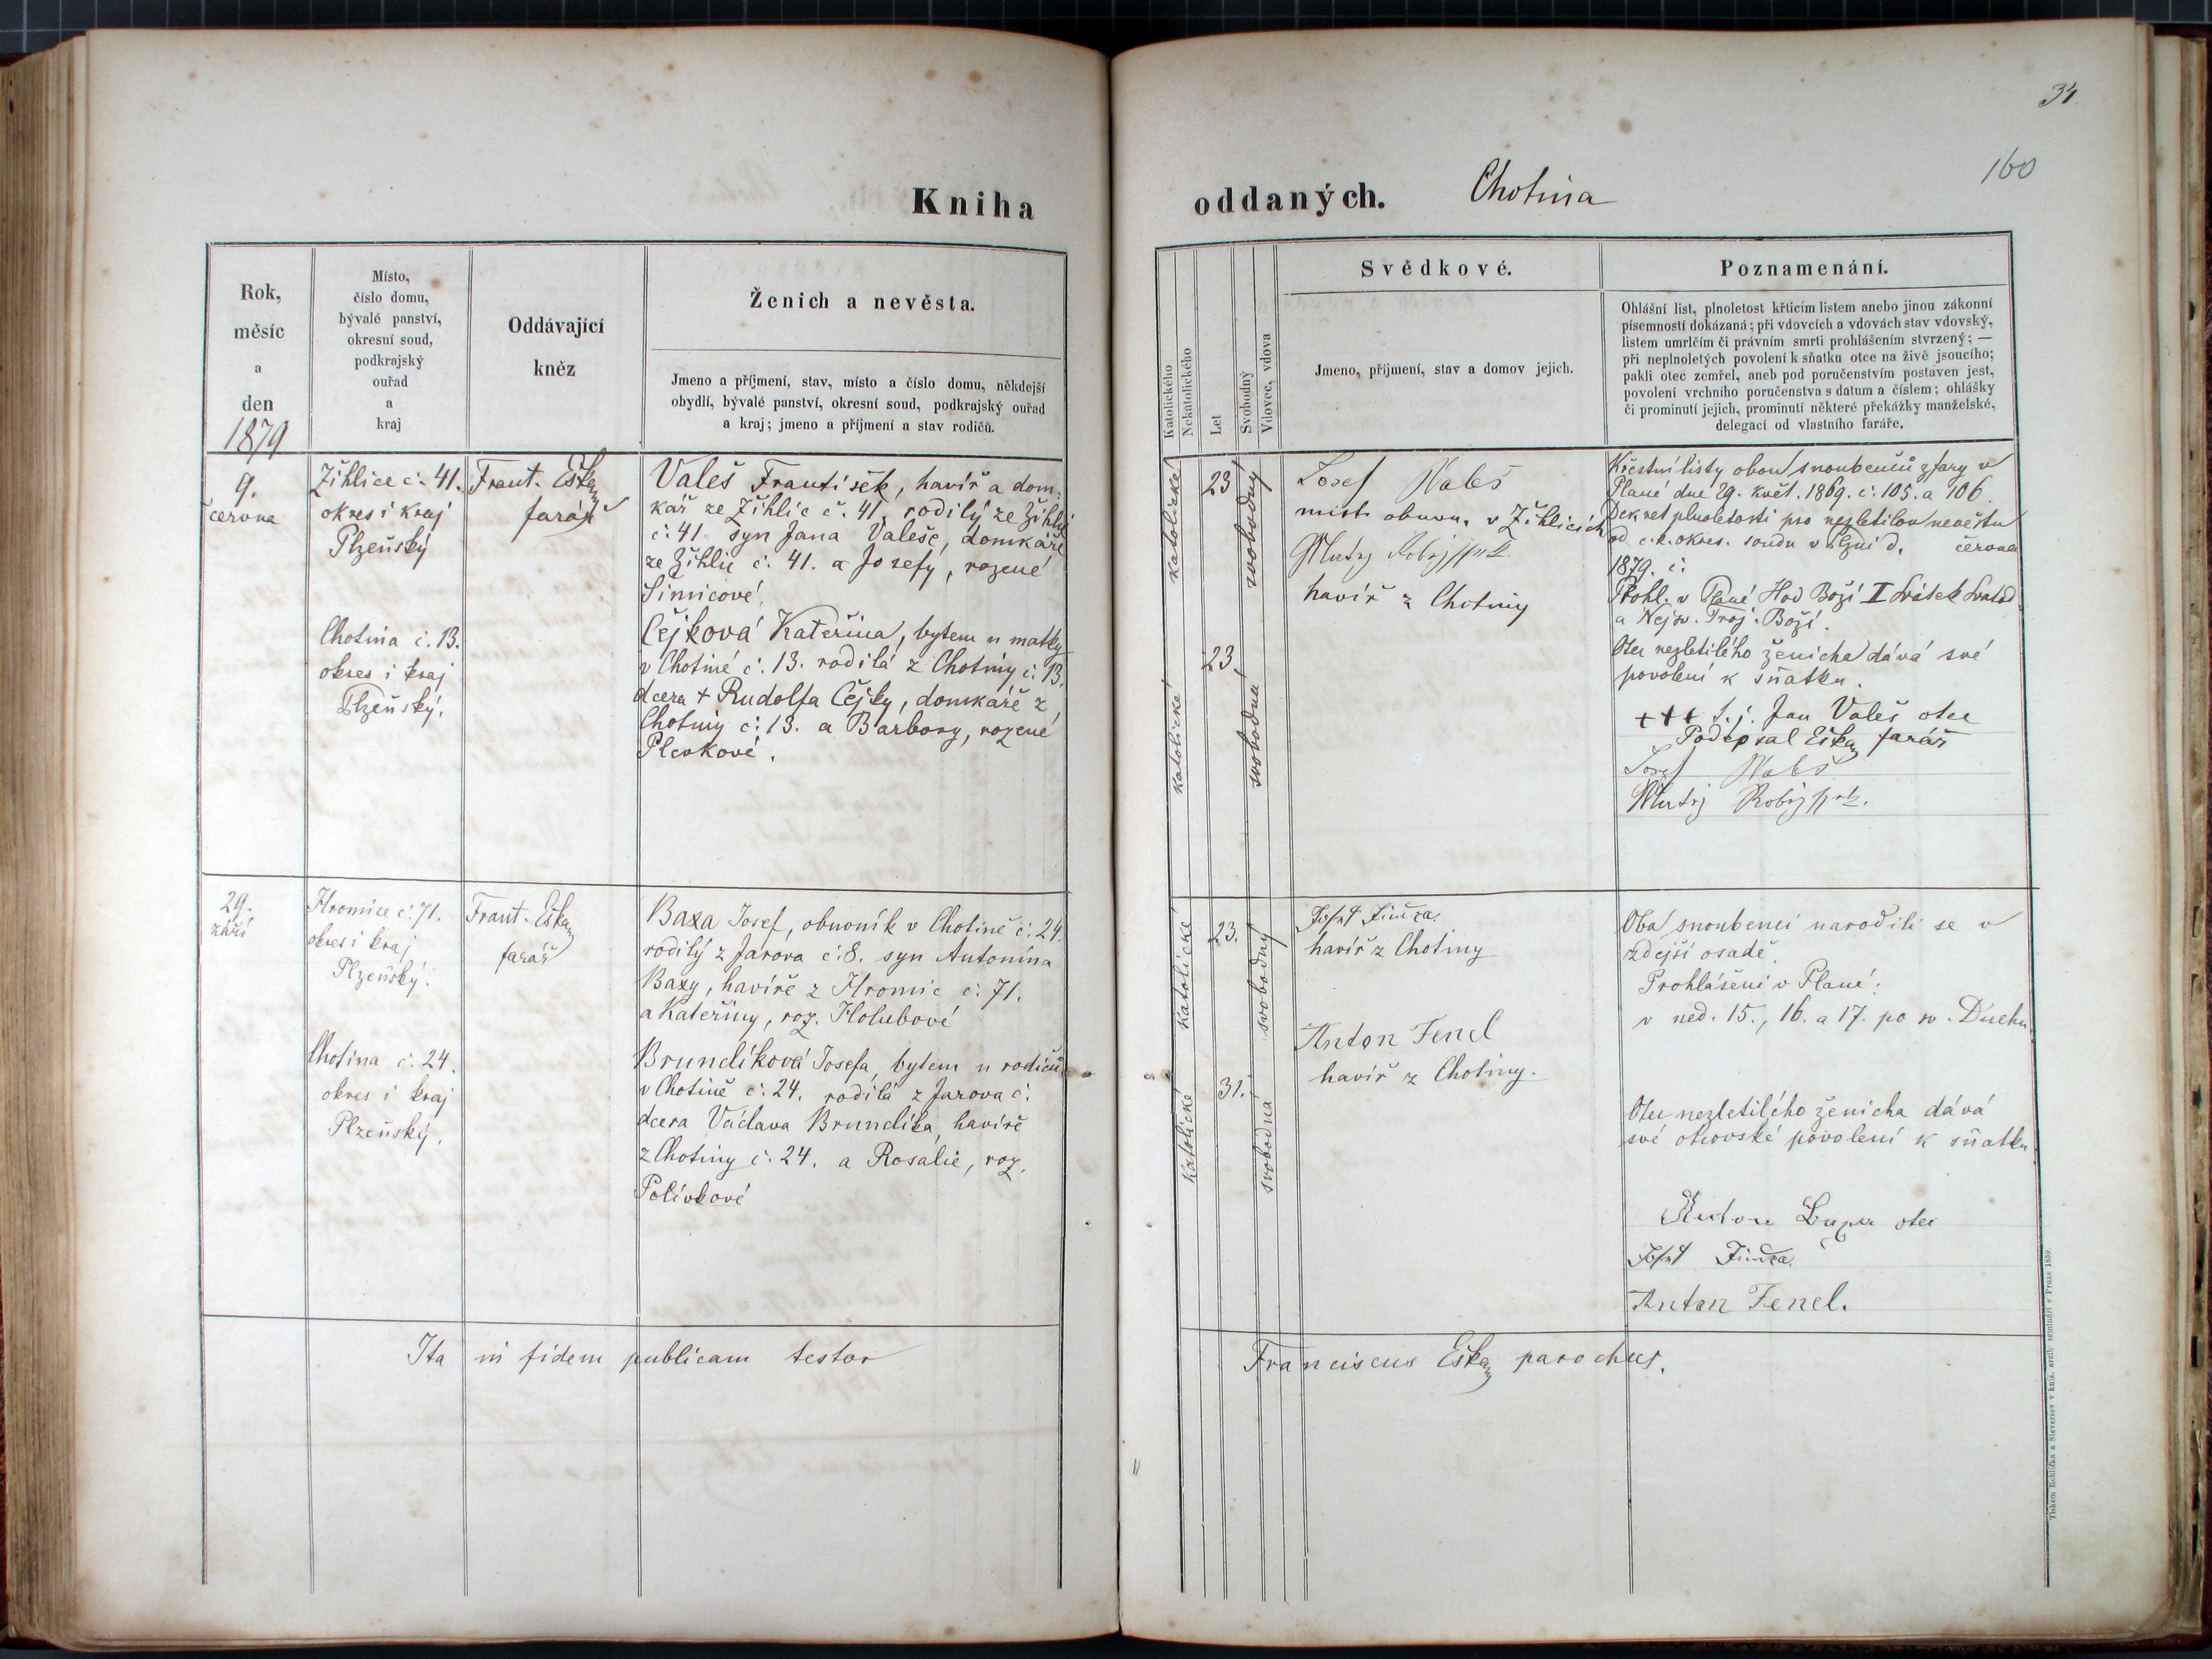 34.
160
Kniha oddaných. Chotina
Rok,
měsíc
a
den
1879
Místo,
číslo domu,
bývalé panství,
okresní soud,
podkrajský
ouřad
a
kraj
Oddávající
kněz
Ženich a nevěsta.
Jmeno a příjmení, stav, místo a číslo domu, někdejší
obydlí, bývalé panství, okresní soud, podkrajský ouřad
a kraj; jmeno a příjmení a stav rodičů.
Katolického
Nekatolického
Let
Svobodný
Vdovec, vdova
Svědkové.
Jmeno, příjmení, stav a domov jejich.
Poznamenání.
Ohlášní list, plnoletost křticím listem anebo jinou zákonní
písemností dokázaná; při vdovcích a vdovách stav vdovský,
listem umrlčím či právním smrti prohlášením stvrzený; —
při neplnoletých povolení k sňatku otce na živě jsoucího;
pakli otec zemřel, aneb pod poručenstvím postaven jest,
povolení vrchního poručenstva s datum a číslem; ohlášky
či prominutí jejich, prominutí některé překážky manželské,
delegací od vlastního faráře.
9.
června
Žihlice č. 41.
okres i kraj
Plzeňský
Chotina č. 13.
okres i kraj
Plzeňský.
Frant. Eška
farář
Valeš František, havíř a dom-
kář ze Žihlic č. 41, rodilý ze Žihlic
č. 41. syn Jana Valeše, domkáře
ze Žihlic č. 41. a Josefy, rozené
Šimicové.
Čejková Kateřina, bytem u matky
v Chotině č. 13. rodilá z Chotiny č. 13.
dcera + Rudolfa Čejky, domkáře z
Chotiny č. 13. a Barbory, rozené
Plevkové.
katolické
23
svobodný
katolické
23.
svobodná
Josef Waleš
mistr obuvn. v Žihlicích
havíř z Chotiny
Křestní listy obou snoubenců z fary v
Plané dne 29. květ. 1869. č. 105. a 106.
Dekret plnoletosti pro nezletilou nevěstu
od c. k. okres. soudu v Plzni d. června
1879. č.
Prohl. v Plané Hod Boží II Svátek Svatod.
a Nejsv. Troj. Boží.
Otec nezletilého ženicha dává své
povolení k sňatku.
+++ Jan Valeš otec
Podepsal Eška farář
Josef Waleš
29.
září
Hromice č. 71.
okres i kraj
Plzeňský.
Chotina č. 24.
okres i kraj
Plzeňský.
Frant. Eška
farář
Baxa Josef, obuvník v Chotině č. 24.
rodilý z Jarova č. 8. syn Antonína
Baxy, havíře z Hromic č. 71.
a Kateřiny, roz. Holubové
Brunclíková Josefa, bytem u rodičů
v Chotině č. 24. rodilá z Jarova č.
dcera Václava Brunclíka, havíře
z Chotiny č. 24. a Rosalie, roz.
Polívkové
katolické
23.
svobodný
katolické
31.
svobodná
havíř z Chotiny
Anton Fencl
havíř z Chotiny.
Oba snoubenci narodili se v
zdejší osadě.
Prohlášeni v Plané:
v ned. 15., 16. a 17. po sv. Duchu
Otec nezletilého ženicha dává
své otcovské povolení k sňatku.
Anton Baxa otec
Anton Fencl.
Ita in fidem publicam testor
Franciscus Eška parochus.